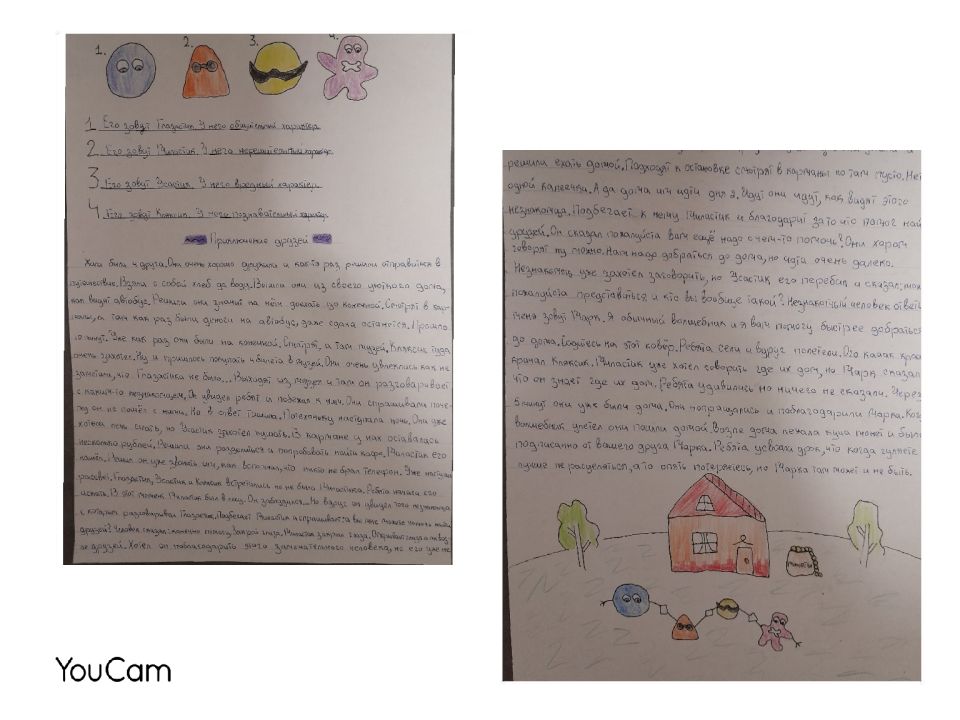 1. 2. 3. 4.
1. Его зовут Глазастик. У него общительный характер.
2. Его зовут Миластик. У него нерешительный характер.
3. Его зовут Усастик. У него вредный характер.
4. Его зовут Кляксик. У него познавательный характер.
Приключение друзей
Жили были 4 друга. Они очень хорошо дружили и как-то раз решили отправиться в
путешествие. Взяли с собой хлеб да воду. Вышли они из своего уютного дома,
как видят автобус. Решили они значит на нём доехать до конечной. Смотрят в кар-
маны, а там как раз были деньги на автобус, даже сдача останется. Прошло
10 минут. Уже как раз они были на конечной. Смотрят, а там музей. Кляксик туда
очень захотел. Ну и пришлось покупать 4 билета в музей. Они очень увлеклись как не
заметили, что Глазастика не было... Выходят из музея и там он разговаривает
с каким-то незнакомцем. Он увидел ребят и побежал к ним. Они спрашивали поче-
му он не пошёл с ними. Но в ответ тишина. Потихоньку наступала ночь. Они уже
хотели лечь спать, но Усастик захотел кушать. В кармане у них оставалась
несколько рублей. Решили они разделиться и попробовать найти кафе. Миластик его
нашёл. Решил он уже звонить им, как вспомнил, что никто не брал телефон. Уже наступил
рассвет. Глазастик, Усастик и Кляксик встретились но не было Миластика. Ребята начали его
искать. В этот момент Миластик был в лесу. Он заблудился... Но вдруг он увидел того незнакомца
с которым разговаривал Глазастик. Подбегает Миластик и спрашивает: а вы мне можете помочь найти
друзей? Человек сказал: конечно помогу, закрой глаза. Миластик закрыл глаза. Открывает глаза а он воз-
ле друзей. Хотел он поблагодарить этого замечательного человека, но его уже не
решили ехать домой. Подходят к остановке смотрят в карманы но там пусто. Нет
одной капеечки. А до дома им идти дня 2. Идут они идут, как видят этого
незнакомца. Подбегает к нему Миластик и благодарит за то что помог най
друзей. Он сказал пожалуйста вам ещё надо с чем-то помочь? Они хором
говорят ну можно. Нам надо добраться до дома, но идти очень далеко.
Незнакомец уже захотел заговорить, но Усастик его перебил и сказал: мож
пожалуйста представиться и кто вы вообще такой? Незнакомый человек ответи
меня зовут Марк. Я обычный волшебник и я вам помогу быстрее добраться
до дома. Садитесь на этот ковёр. Ребята сели и вдруг полетели. Ого какая крас
кричал Кляксик. Миластик уже хотел говорить где их дом, но Марк сказал
что он знает где их дом. Ребята удивились но ничего не сказали. Через
5 минут они уже были дома. Они попрощались и поблагодарили Марка. Когд
волшебник улетел они пошли домой. Возле дома лежала куча монет и было
подписанно от вашего друга Марка. Ребята усвоили урок, что когда гуляете
лучше не разделяться, а то опять потеряетесь, но Марка там может и не быть.
монеты
YouCam